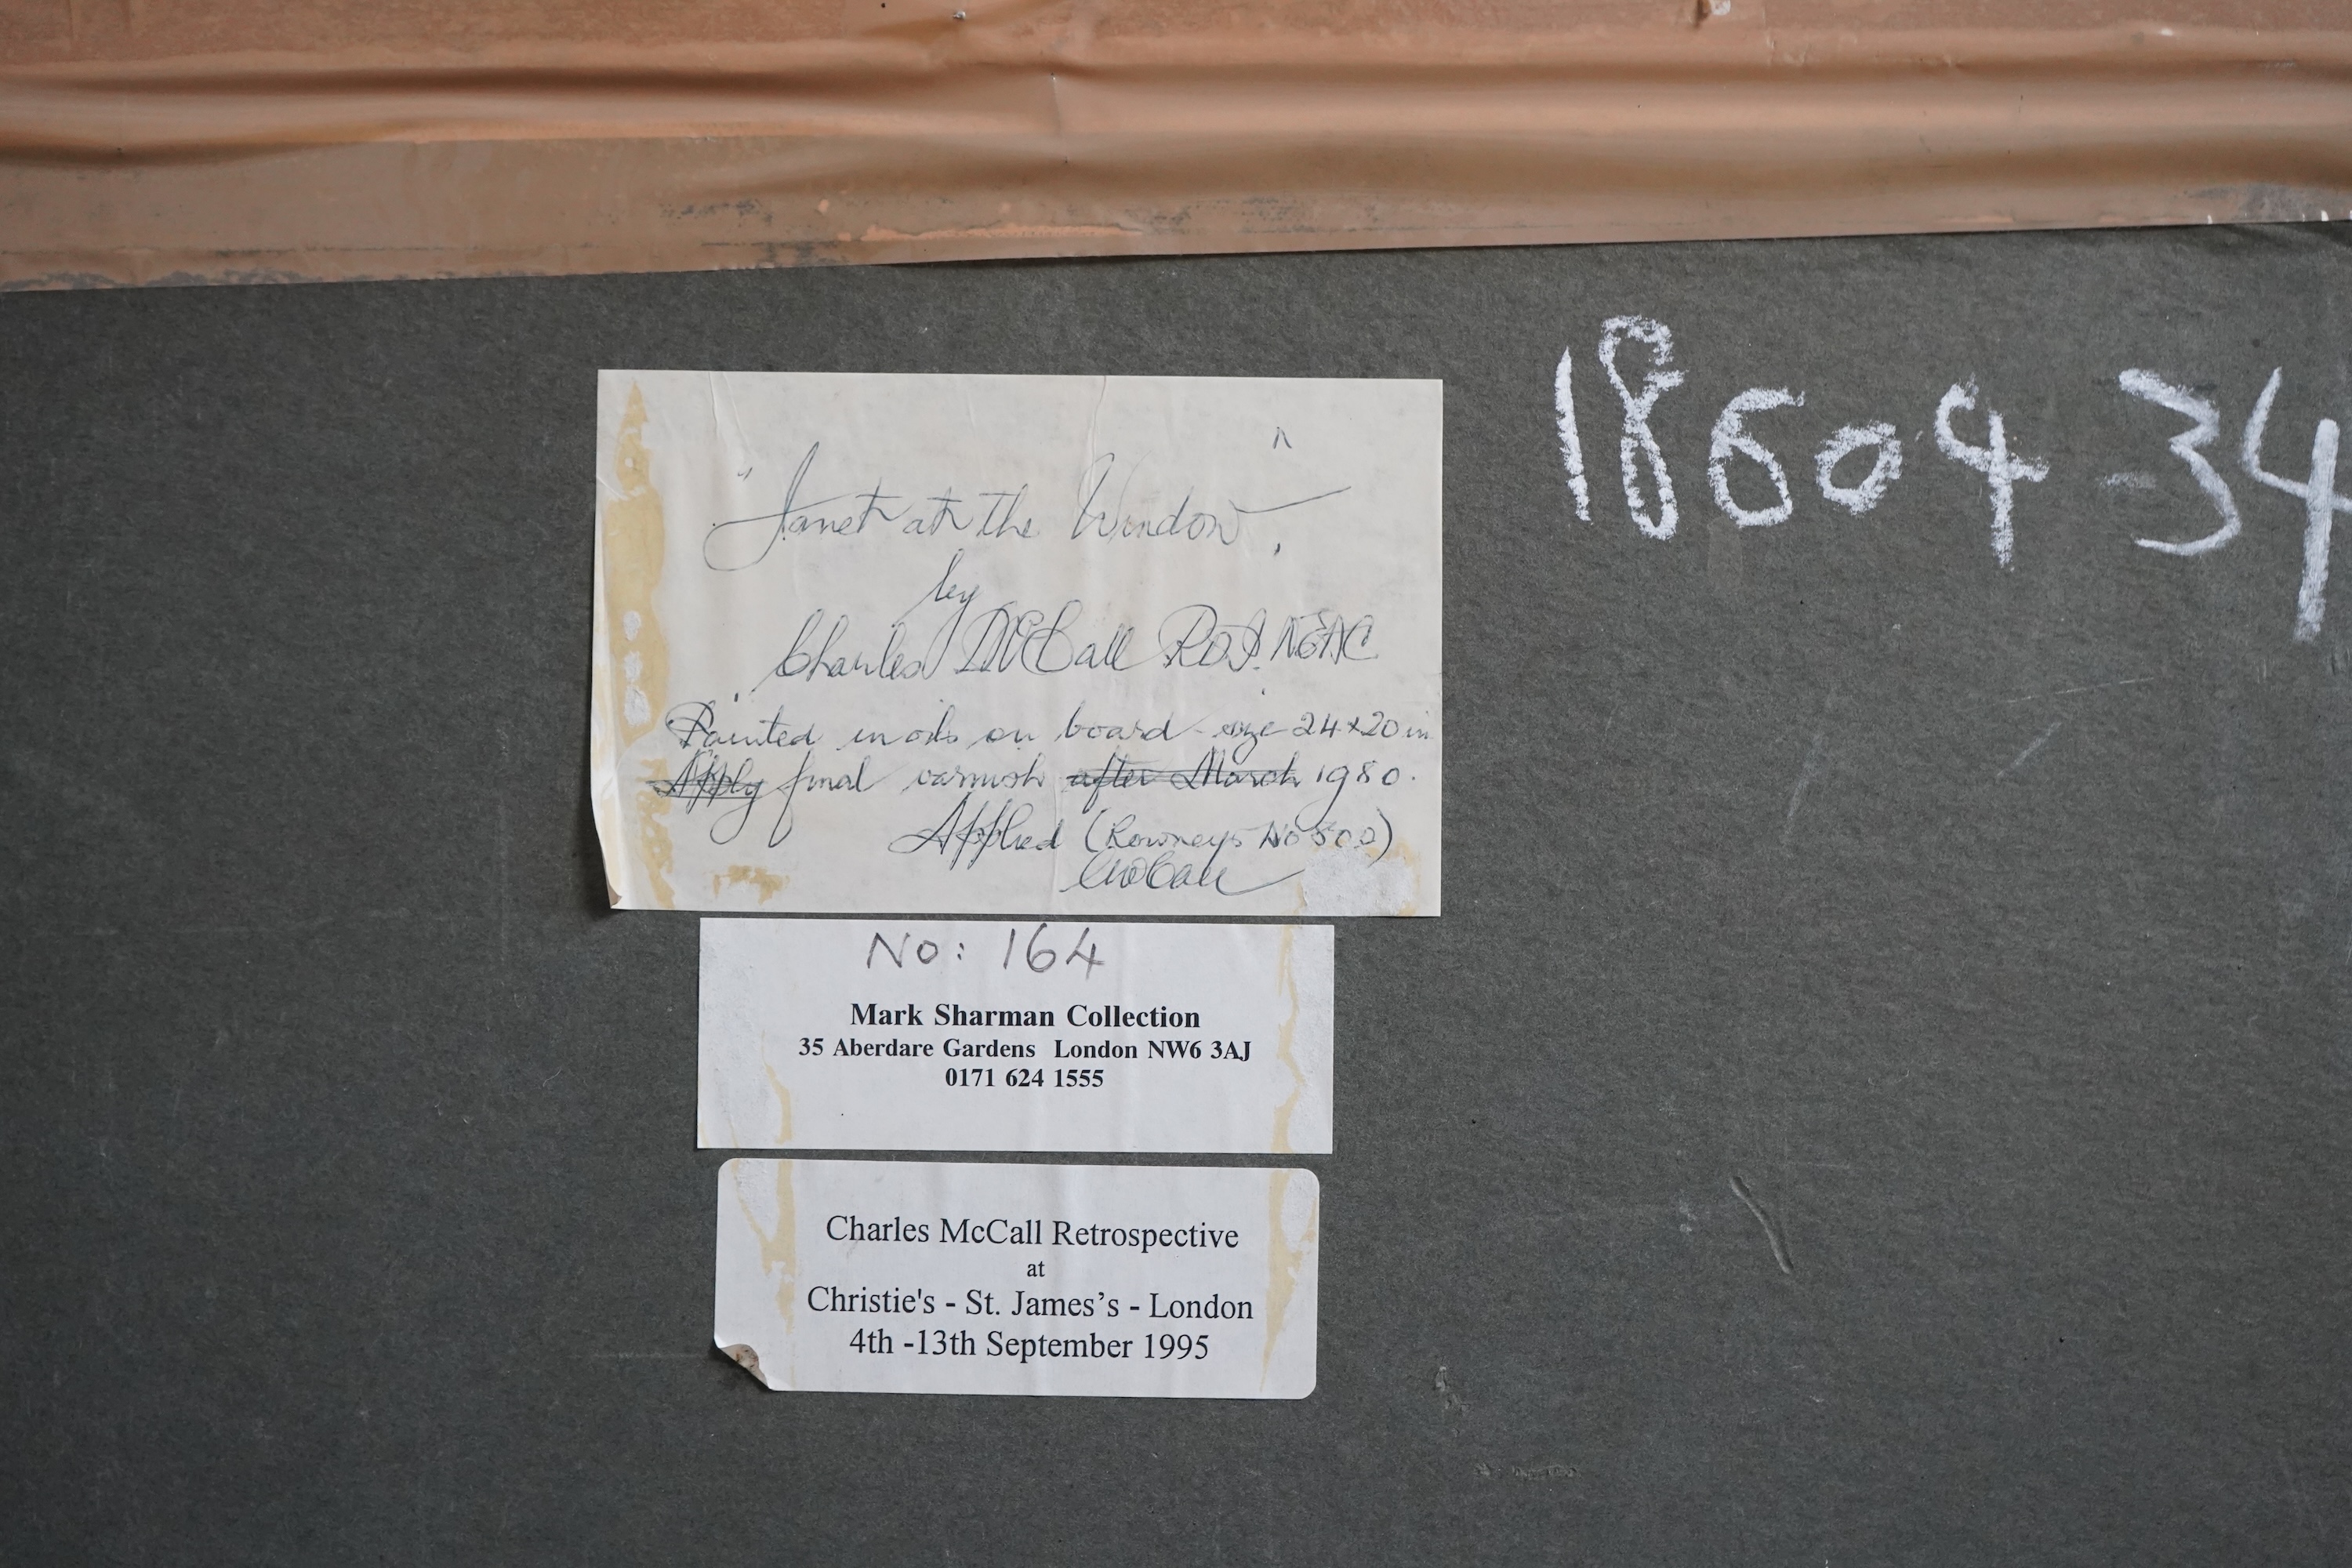 18604-34
"Janet at the Window".
by
Charles McCall ROI. NEAC
Painted in oils on board - size 24 x 20 in
Apply final varnish after March 1980.
Applied (Rowneys No 800)
McCall
No: 164
Mark Sharman Collection
35 Aberdare Gardens London NW6 3AJ
0171 624 1555
Charles McCall Retrospective
at
Christie's - St. James’s - London
4th -13th September 1995